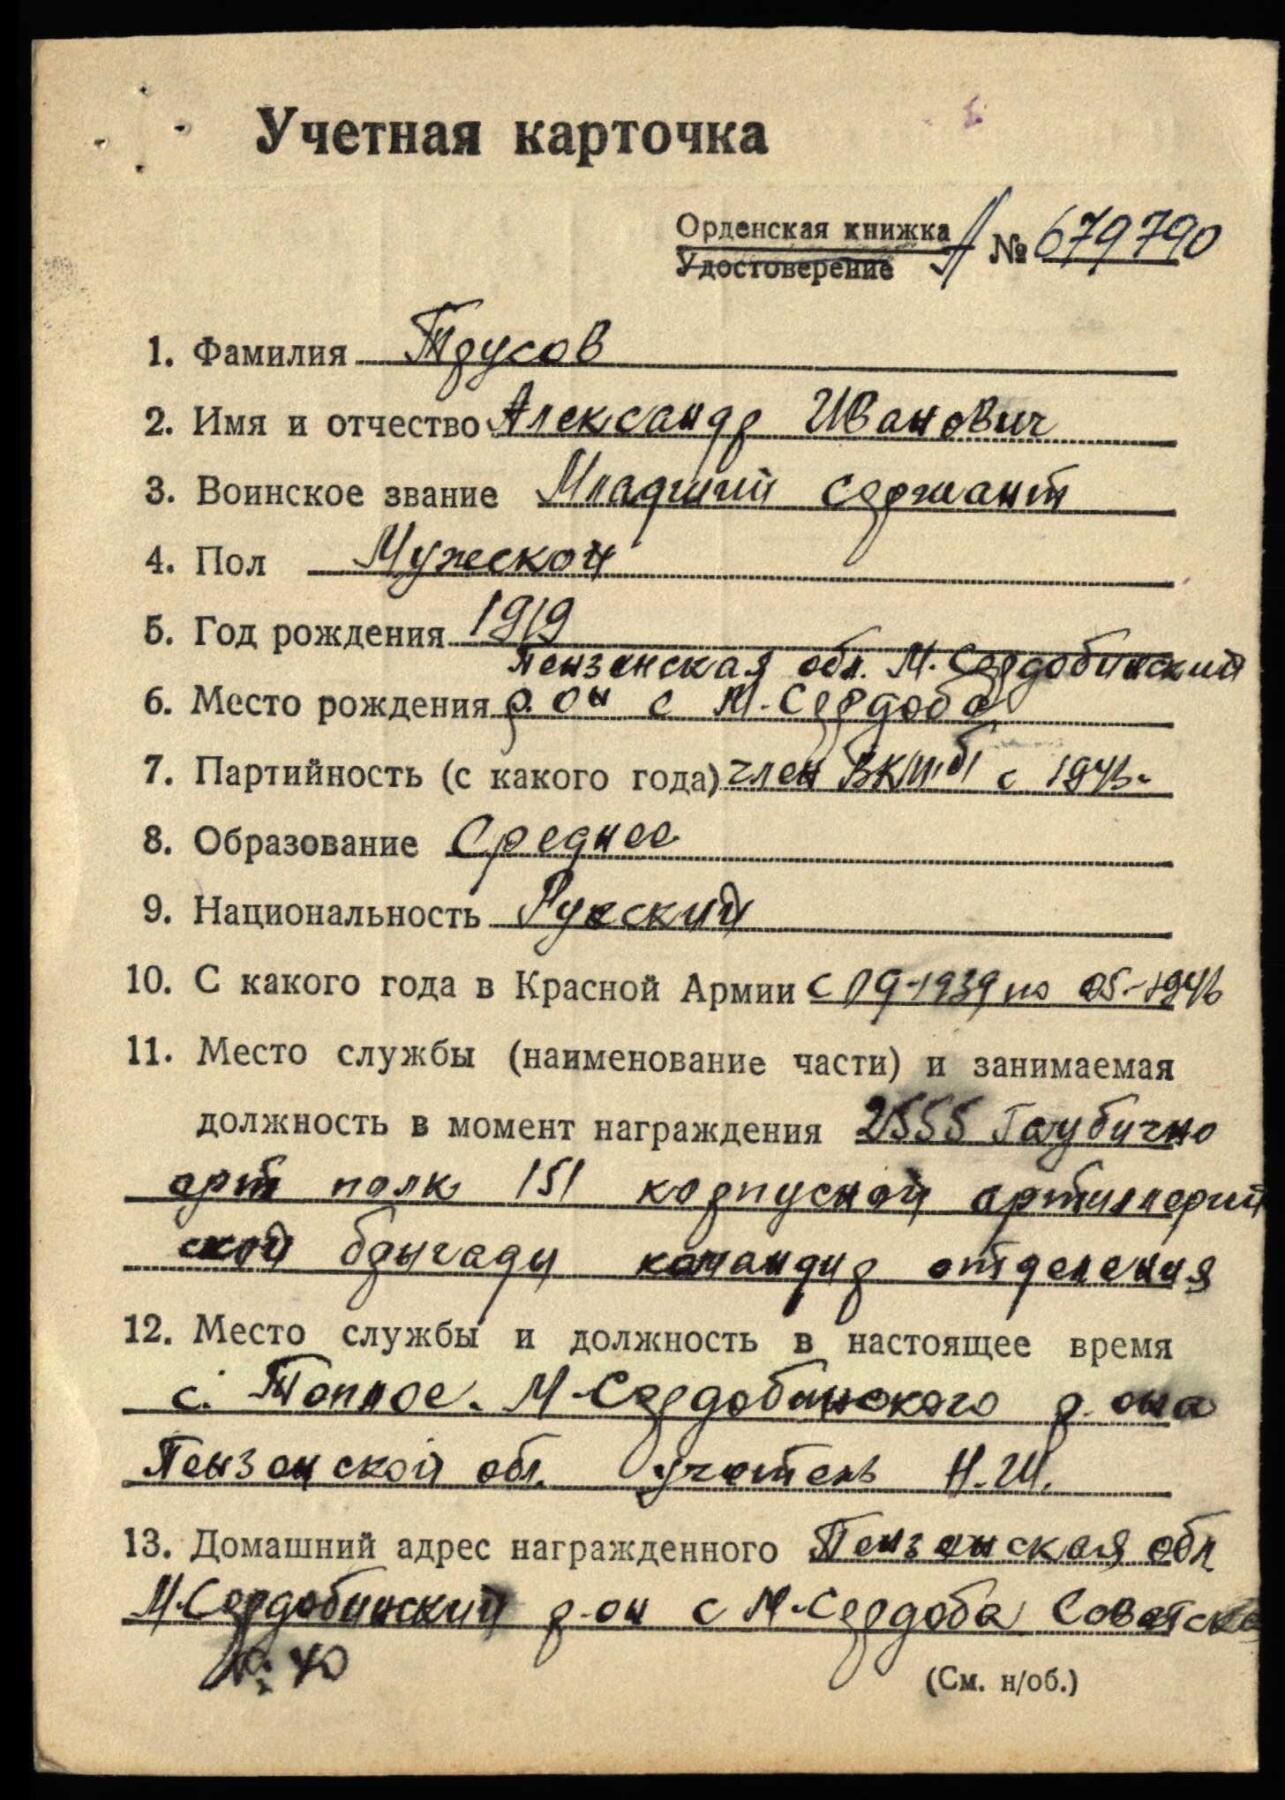 Учетная карточка
Орденская книжка А № 679790
Удостоверение
1. Фамилия Трусов
2. Имя и отчество Александр Иванович
3. Воинское звание Младший сержант
4. Пол Мужской
5. Год рождения 1919
Пензенская обл. М-Сердобинский
6. Место рождения р.он с М-Сердоба
7. Партийность (с какого года) член ВКПб с 1943г
8. Образование Среднее
9. Национальность Русский
10. С какого года в Красной Армии с 09-1939 по 05-1946
11. Место службы (наименование части) и занимаемая
должность в момент награждения 2555 Гаубично
арт полк 151 корпусной артиллерий
ской бригады командир отделения
12. Место службы и должность в настоящее время
с. Топлое. М-Сердобинского р.она
Пензенской обл. учитель Н.Ш.
13. Домашний адрес награжденного Пензенская обл
М-Сердобинский р-он с М-Сердоба Советска
(См. н/об.)